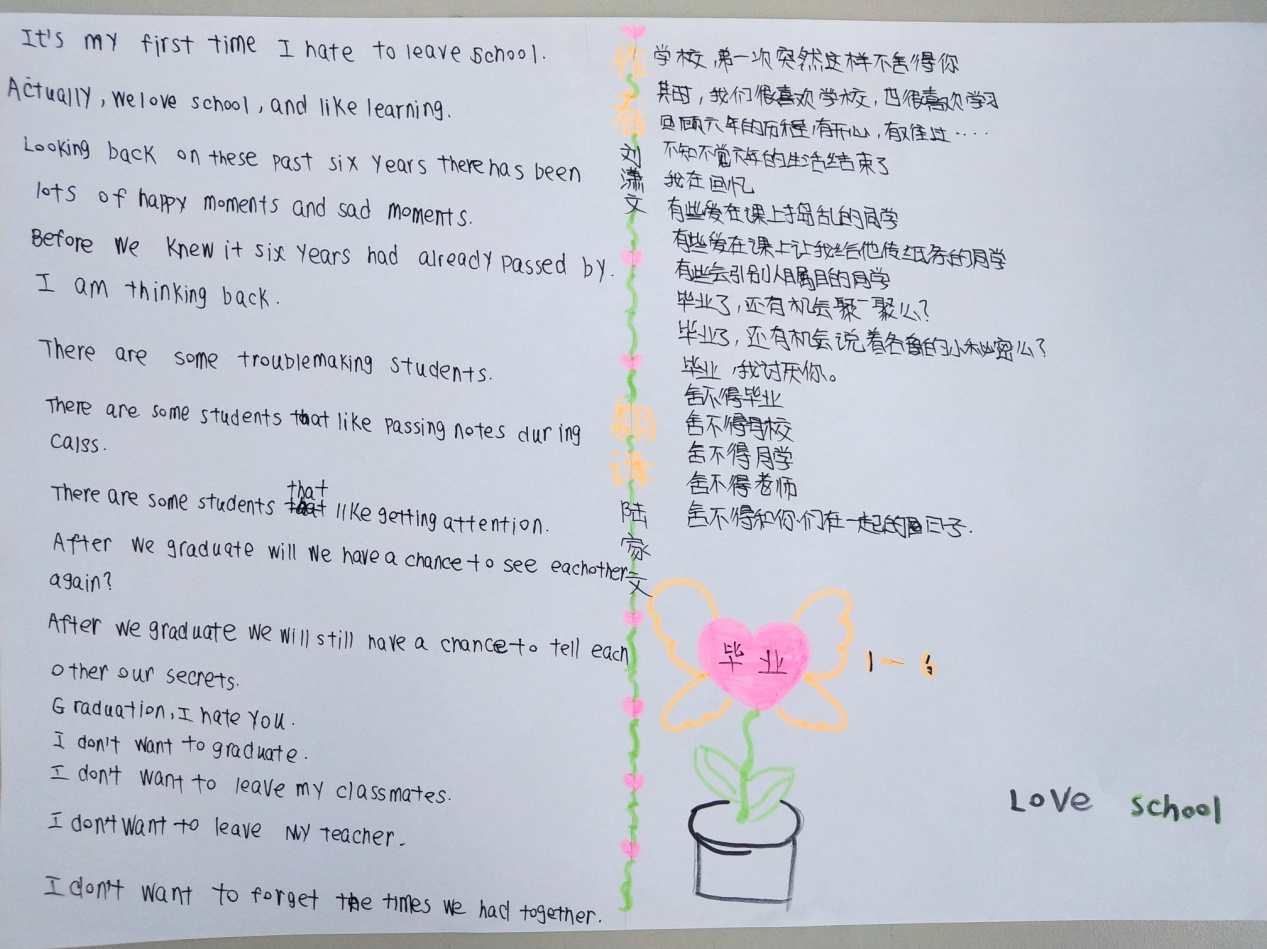 It's my first time I hate to leave school.
Actually, we love school, and like learning.
Looking back on these past six years there has been
lots of happy moments and sad moments.
Before we knew it six years had already passed by.
I am thinking back.
There are some troublemaking students.
There are some students that like passing notes during
calss.
There are some students that like getting attention.
After we graduate will we have a chance to see eachother
again?
After we graduate we will still have a chance to tell each
other our secrets.
Graduation, I hate you.
I don't want to graduate.
I don't want to leave my classmates.
I don't want to leave my teacher.
I don't want to forget the times we had together.
作者
刘潇文
翻译
陆家文
学校,第一次突然这样不舍得你
其时,我们很喜欢学校,也很喜欢学习
回顾六年的历程,有开心,有难过····
不知不觉六年的生活结束了
我在回忆
有些爱在课上捣乱的同学
有些爱在课上让我给他传纸条的同学
有些会引别人瞩目的同学
毕业了,还有机会聚一聚么?
毕业了,还有机会说着各自的小秘密么?
毕业,我讨厌你。
舍不得毕业
舍不得母校
舍不得同学
舍不得老师
舍不得和你们在一起的日子.
毕业
1-6
Love school